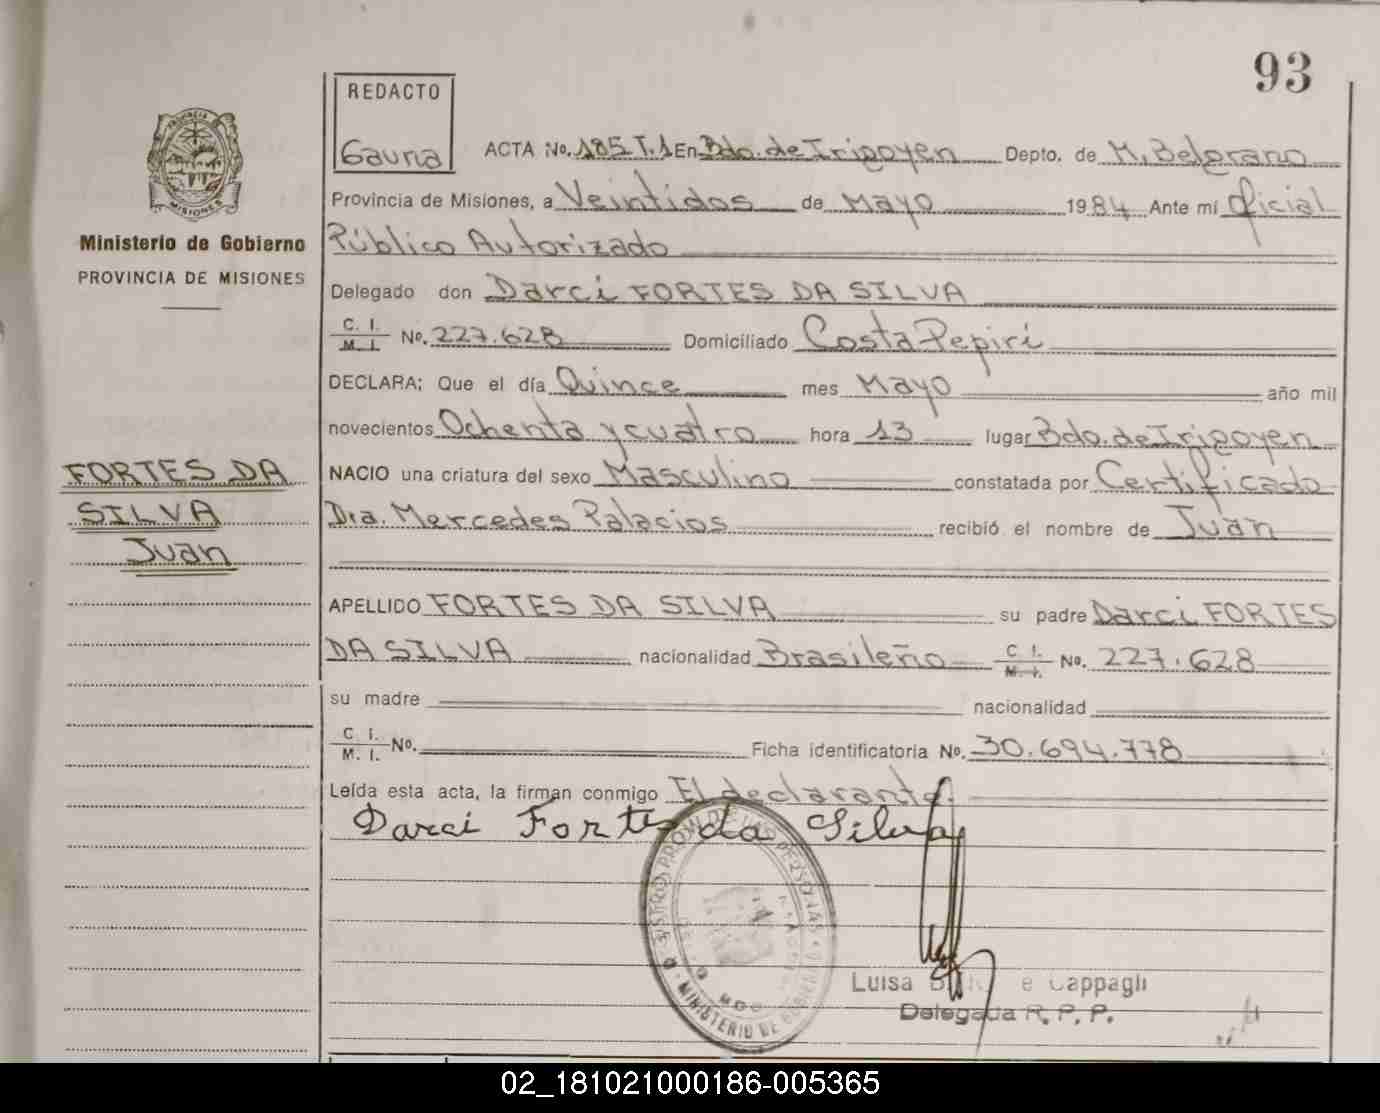 93
REDACTO
Gauna
ACTA No. 185 T.1 En Bdo. de Irigoyen Depto. de M. Belgrano
Provincia de Misiones, a Veintidos de Mayo 1984 Ante mí Oficial
Público Autorizado
Delegado don Darci FORTES DA SILVA
C. I.
M. I. No. 227.628 Domiciliado Costa Pepirí
DECLARA: Que el día Quince mes Mayo año mil
novecientos Ochenta y cuatro hora 13 lugar Bdo. de Irigoyen
NACIO una criatura del sexo Masculino constatada por Certificado
Dra. Mercedes Palacios recibió el nombre de Juan
APELLIDO FORTES DA SILVA su padre Darci FORTES
DA SILVA nacionalidad Brasileño C. I. M. I. No. 227.628
su madre nacionalidad
C. I.
M. I. No. Ficha identificatoria No. 30.694.778
Leída esta acta, la firman conmigo El declarante.
Darci Fortes da Silva
MINISTERIO DE
Luisa Cappagli
Delegada R. P. P.
PROVINCIA DE
MISIONES
Ministerio de Gobierno
PROVINCIA DE MISIONES
FORTES DA
SILVA
Juan
02_181021000186-005365